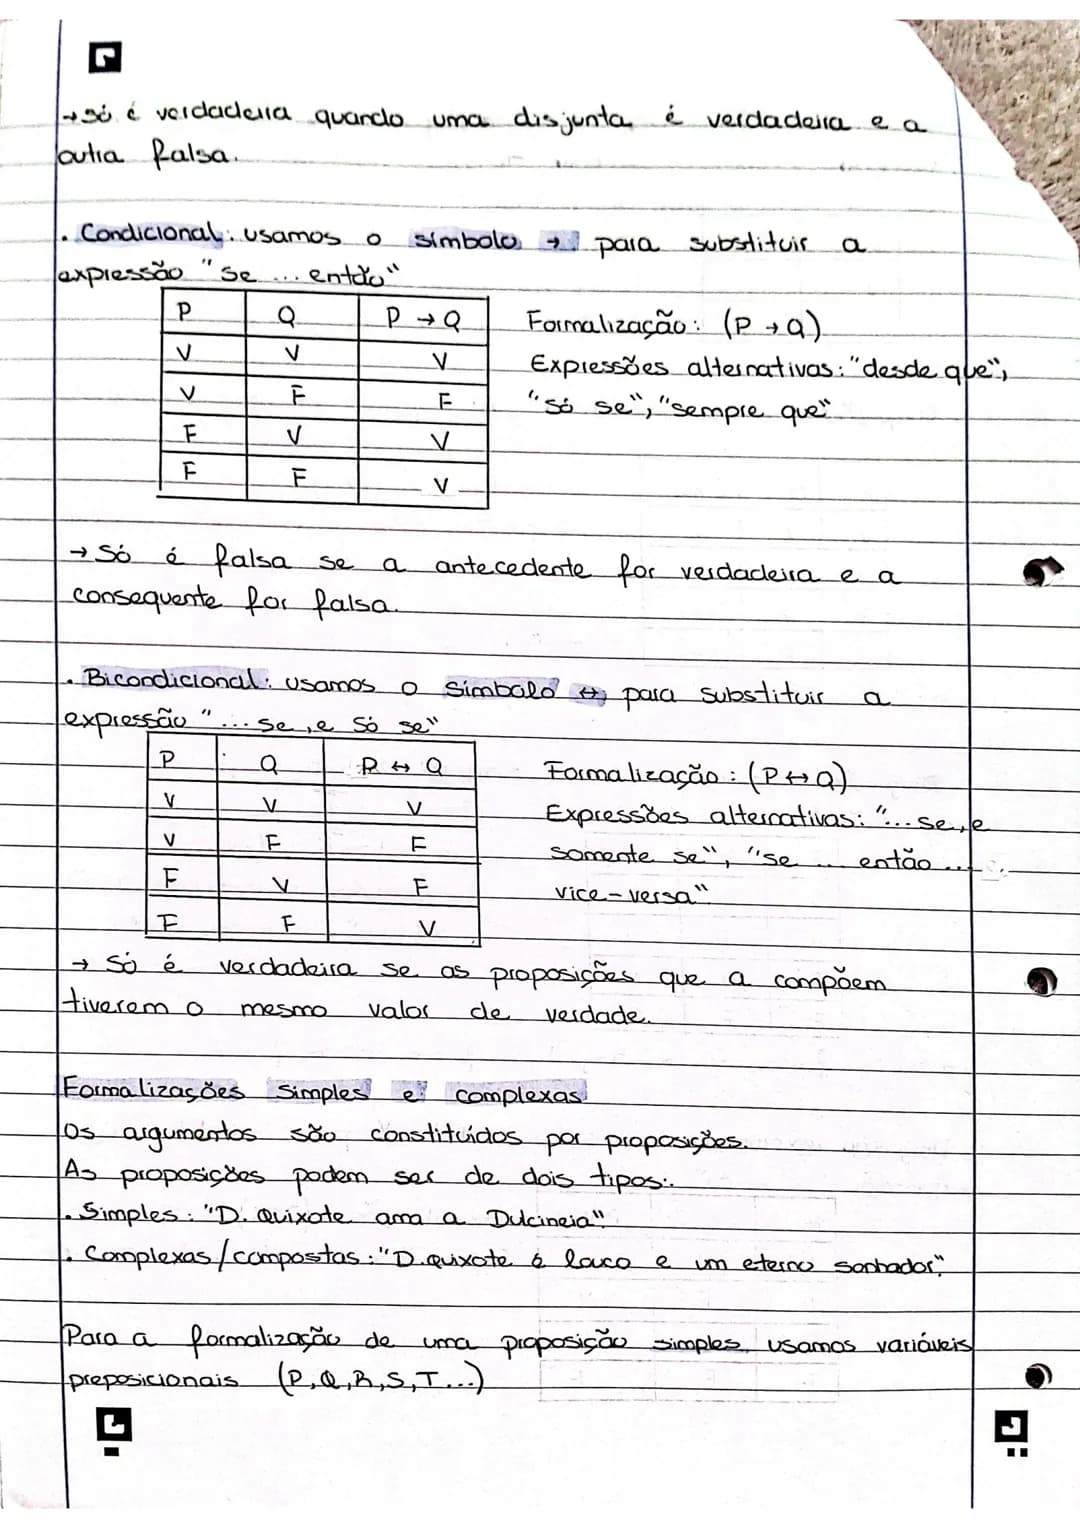 → só é verdadeira quando uma disjunta é verdadeira e a
outra falsa.
. Condicional: usamos o símbolo → para substituir a
expressão "se ... então"
P Q P → Q
V V V
V F F
F V V
F F V
Formalização: (P → Q)
Expressões alternativas: "desde que",
"só se", "sempre que"
→ Só é falsa se a antecedente for verdadeira e a
consequente for falsa.
. Bicondicional: usamos o símbolo ↔ para substituir a
expressão "... se, e só se"
P Q P ↔ Q
V V V
V F F
F V F
F F V
Formalização: (P ↔ Q)
Expressões alternativas: "... se, e
somente se", "se ... então ...
vice-versa"
→ Só é verdadeira se as proposições que a compõem
tiverem o mesmo valor de verdade.
Formalizações simples e complexas
Os argumentos são constituídos por proposições.
As proposições podem ser de dois tipos:
. Simples: "D. Quixote ama a Dulcineia"
. Complexas/compostas: "D. quixote é louco e um eterno sonhador"
Para a formalização de uma proposição simples usamos variáveis
preposicionais (P, Q, R, S, T...)